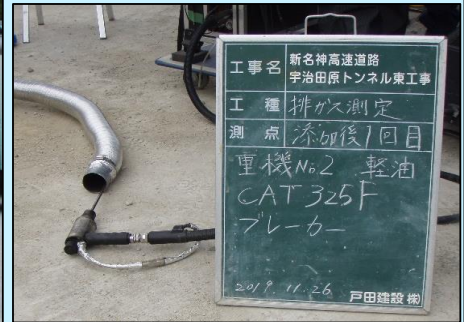 工事名 新名神高速道路
宇治田原トンネル東工事
工種 排ガス測定
測点 添加後1回目
重機No.2 軽油
CAT 325F
ブレーカー
2019.11.26 戸田建設(株)